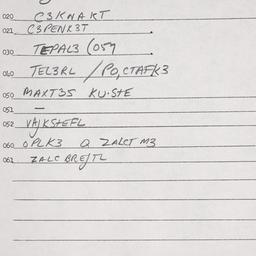 020 C3KNAKT
021 C3PENK3T
030 TEPAL3 (059
040 TEL3RL / PO,CTAFK3
050 MAXT35 KU·StE
051 —
052 VAJKSTEFL
060 OPLK3 a ZALCT M3
061 ZALC BREJTL